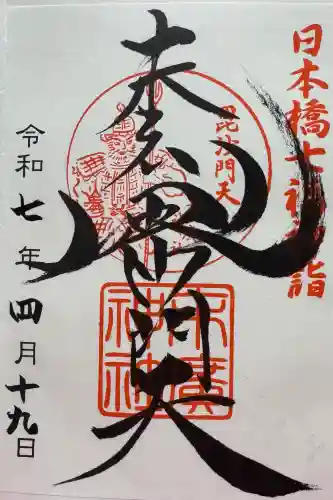 日本橋七福神詣
毘沙門天
毘沙門天
末廣
神社
令和七年四月十九日